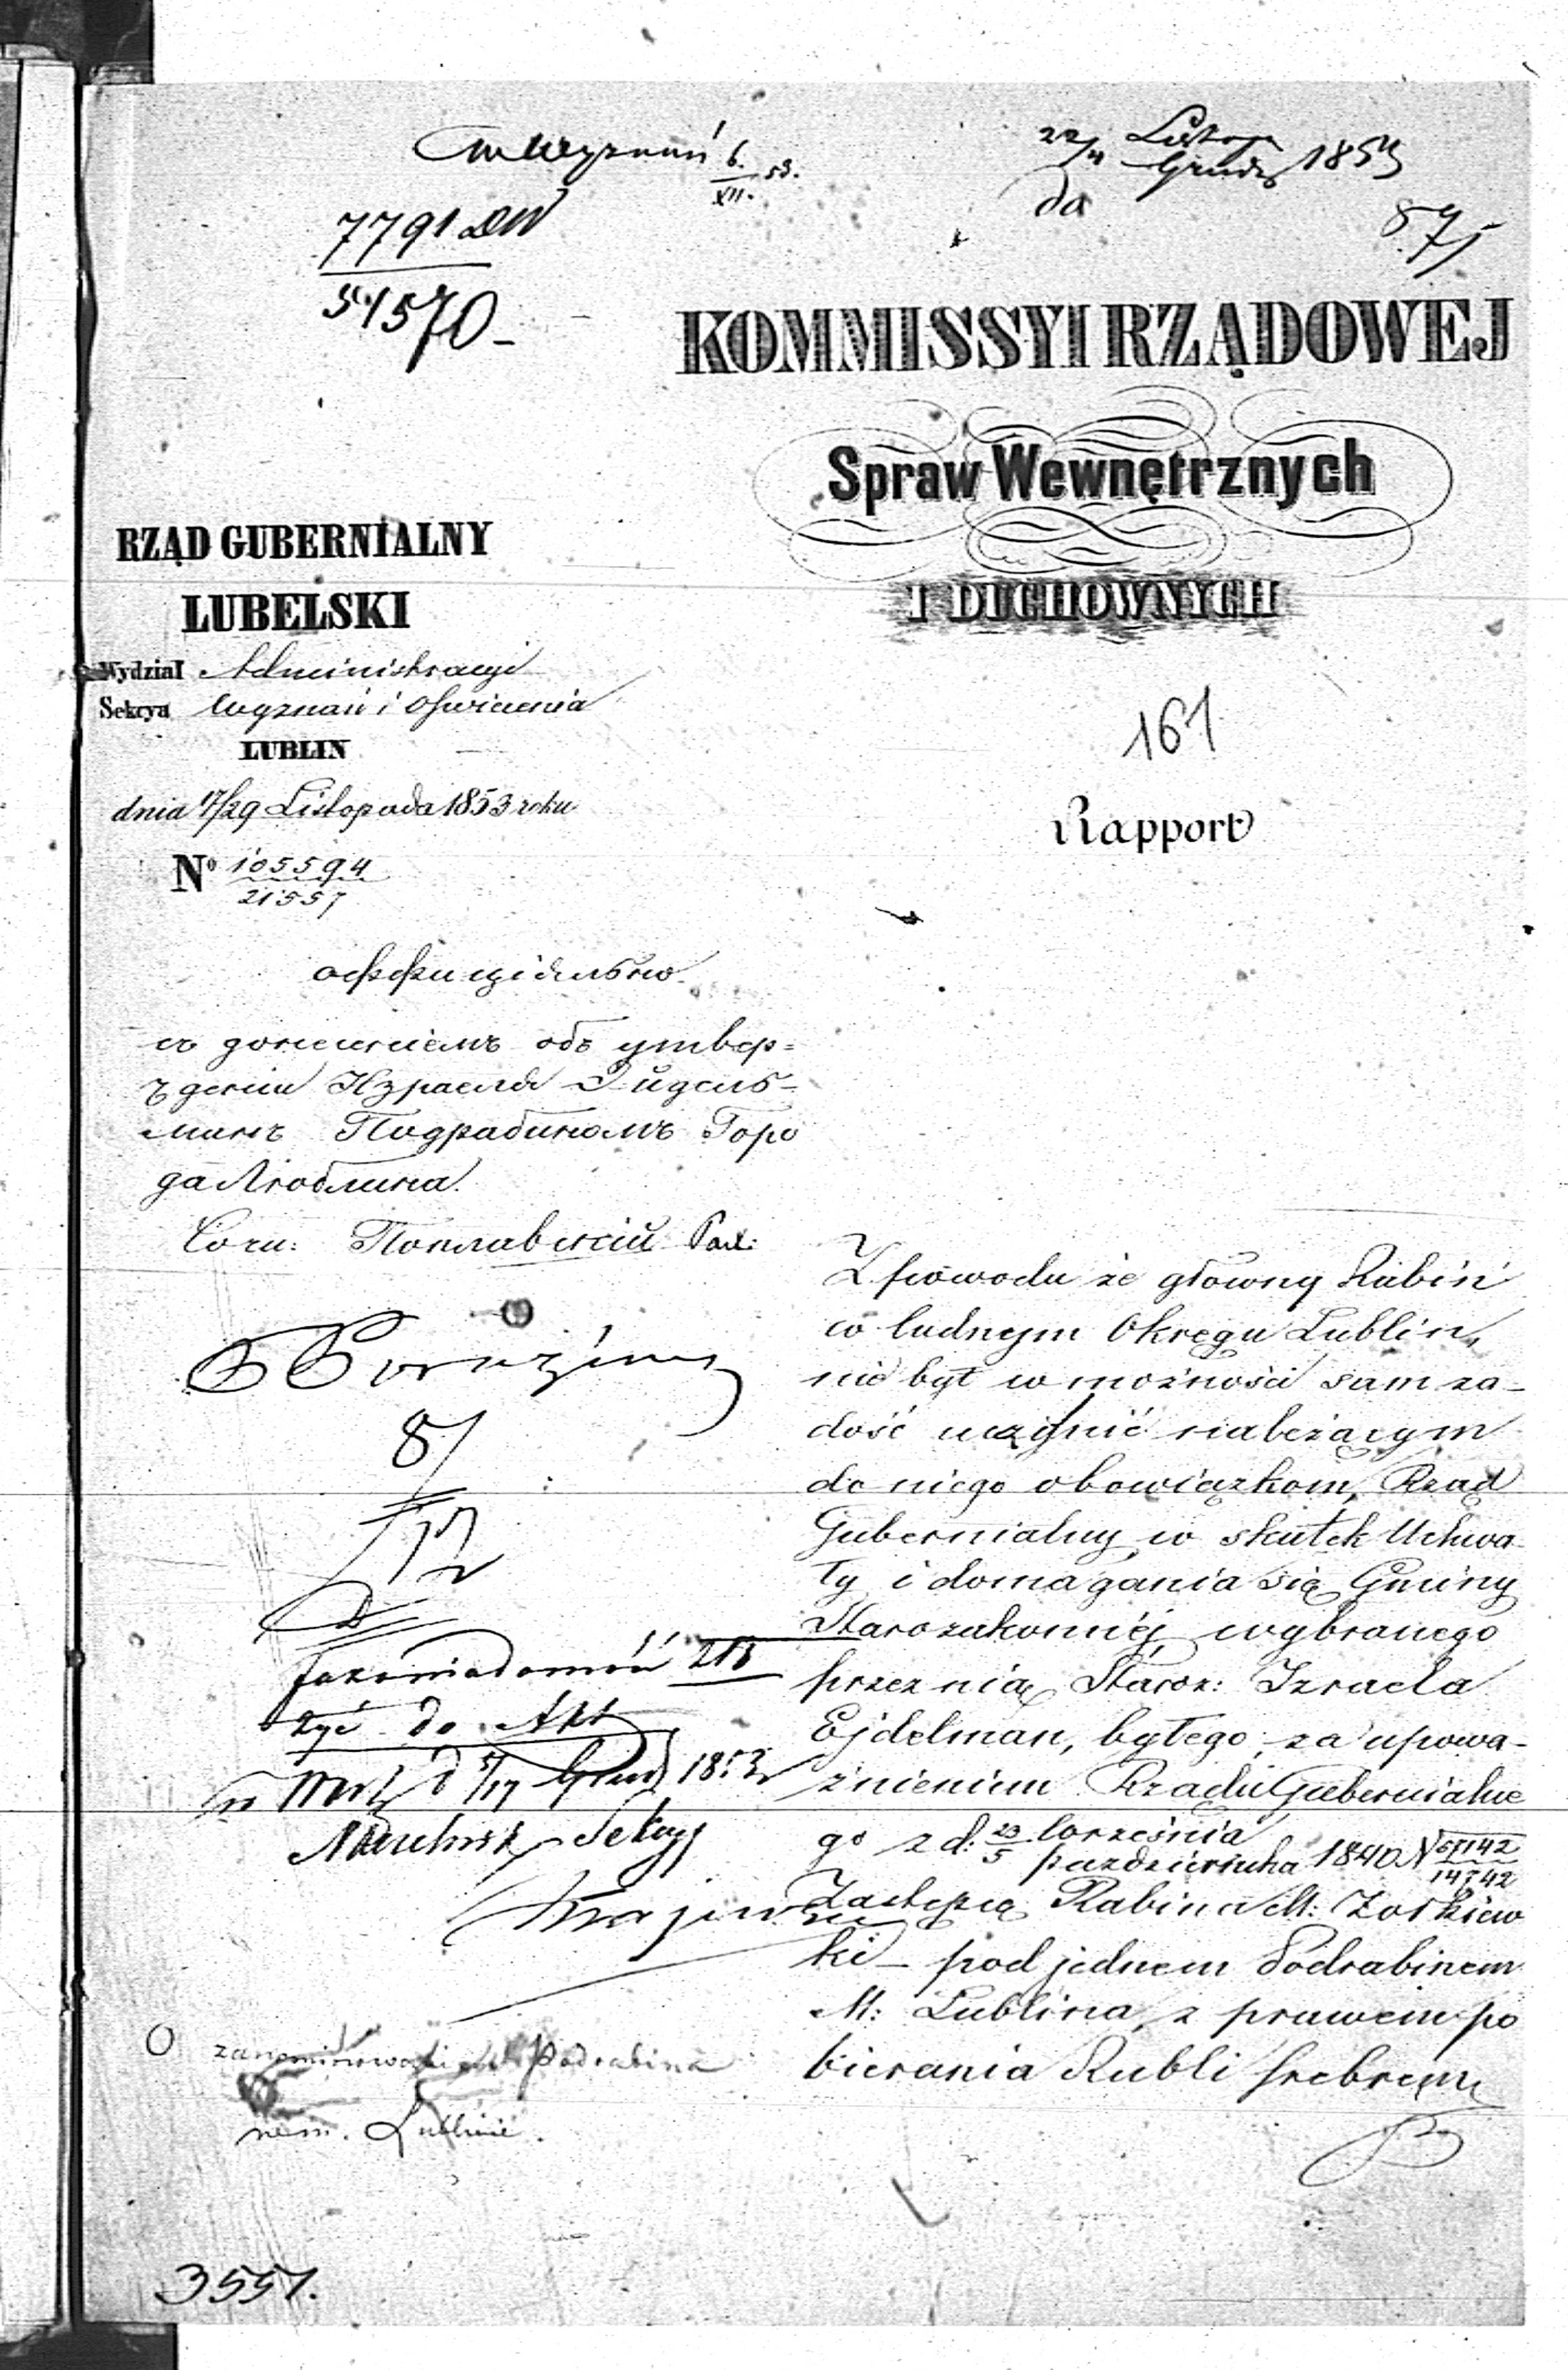 Wyznań 6/XII. 53.
22/4 Listop/Grud 1853
da
87
7791 DW
51570
KOMMISSYI RZĄDOWEJ
Spraw Wewnętrznych
I DUCHOWNYCH
RZĄD GUBERNIALNY
LUBELSKI
Wydział Administracyi
Sekcya Wyznań i Oświecenia
LUBLIN
dnia 17/29 Listopada 1853 roku
No 105594/21557
161
Rapport
оффиціяльно
съ донесеніемъ объ утвер=
жденіи Израеля Эйдель=
манъ Подрабиномъ Горо
да Люблина.
Z powodu że główny Rabin
w ludnym Okręgu Lublin,
nie był w możności sam za-
dość uczynić należącym
do niego obowiązkom, Rząd
Gubernialny w skutek Uchwa-
ły i domagania się Gminy
Starozakonnéj wybranego
przez nią Staroz: Izraela
Ejdelman, byłego za upowa-
żnieniem Rządu Gubernialne
go z d: 23/5 Września/Października 1840 N 67142/14742
Zastępcą Rabina M: Żołkiew
ki – pod jednem Podrabinem
M: Lublina, z prawem po
bierania Rubli srebrem
do Akt
5/17 Grud 1853
Naczelnik Sekcyi
O zanominowaniu Podrabina
w m. Lublinie.
3551.